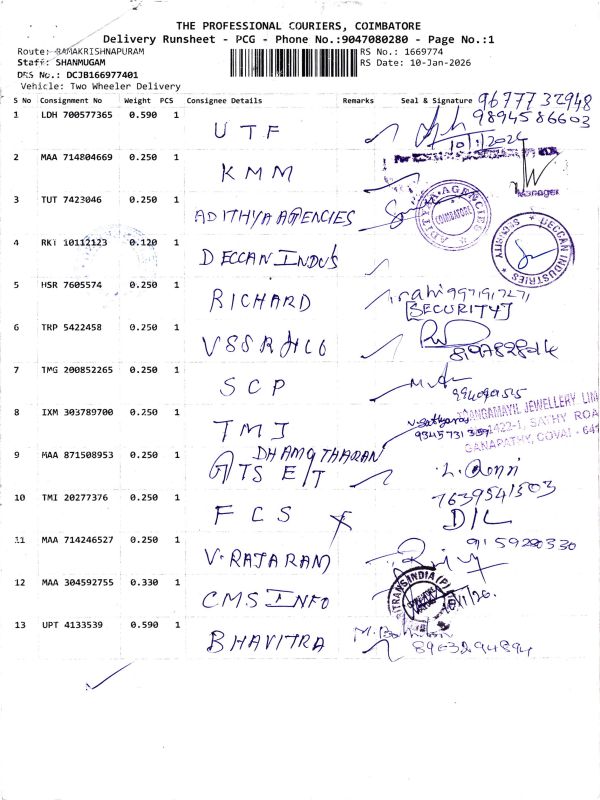 THE PROFESSIONAL COURIERS, COIMBATORE
Delivery Runsheet - PCG - Phone No.:9047080280 - Page No.:1
Route: RAMAKRISHNAPURAM RS No.: 1669774
Staff: SHANMUGAM RS Date: 10-Jan-2026
DRS No.: DCJB166977401
Vehicle: Two Wheeler Delivery
S No Consignment No Weight PCS Consignee Details Remarks Seal & Signature 9677732948
9894586603
1 LDH 700577365 0.590 1 UTF
2 MAA 714804669 0.250 1 KMM
Manager
3 TUT 7423046 0.250 1 ADITHYA AGENCIES
ADITHYA AGENCIES COIMBATORE
4 RKT 10112123 0.120 1 DECCAN INDUS
DECCAN INDUSTRIES SECURITY
5 HSR 7605574 0.250 1 RICHARD
[SECURITY]
6 TRP 5422458 0.250 1
7 TMG 200852265 0.250 1 SCP
8 IXM 303789700 0.250 1 TMJ
THANGAMAYIL JEWELLERY LIM
1422-1, SATHY ROA
GANAPATHY, COVAI - 641
9 MAA 871508953 0.250 1
10 TMI 20277376 0.250 1 FCS D/L
7639541503
11 MAA 714246527 0.250 1 V. RAJARAM 9159280330
12 MAA 304592755 0.330 1 CMS INFO
13 UPT 4133539 0.590 1 BHAVITRA
8903294894